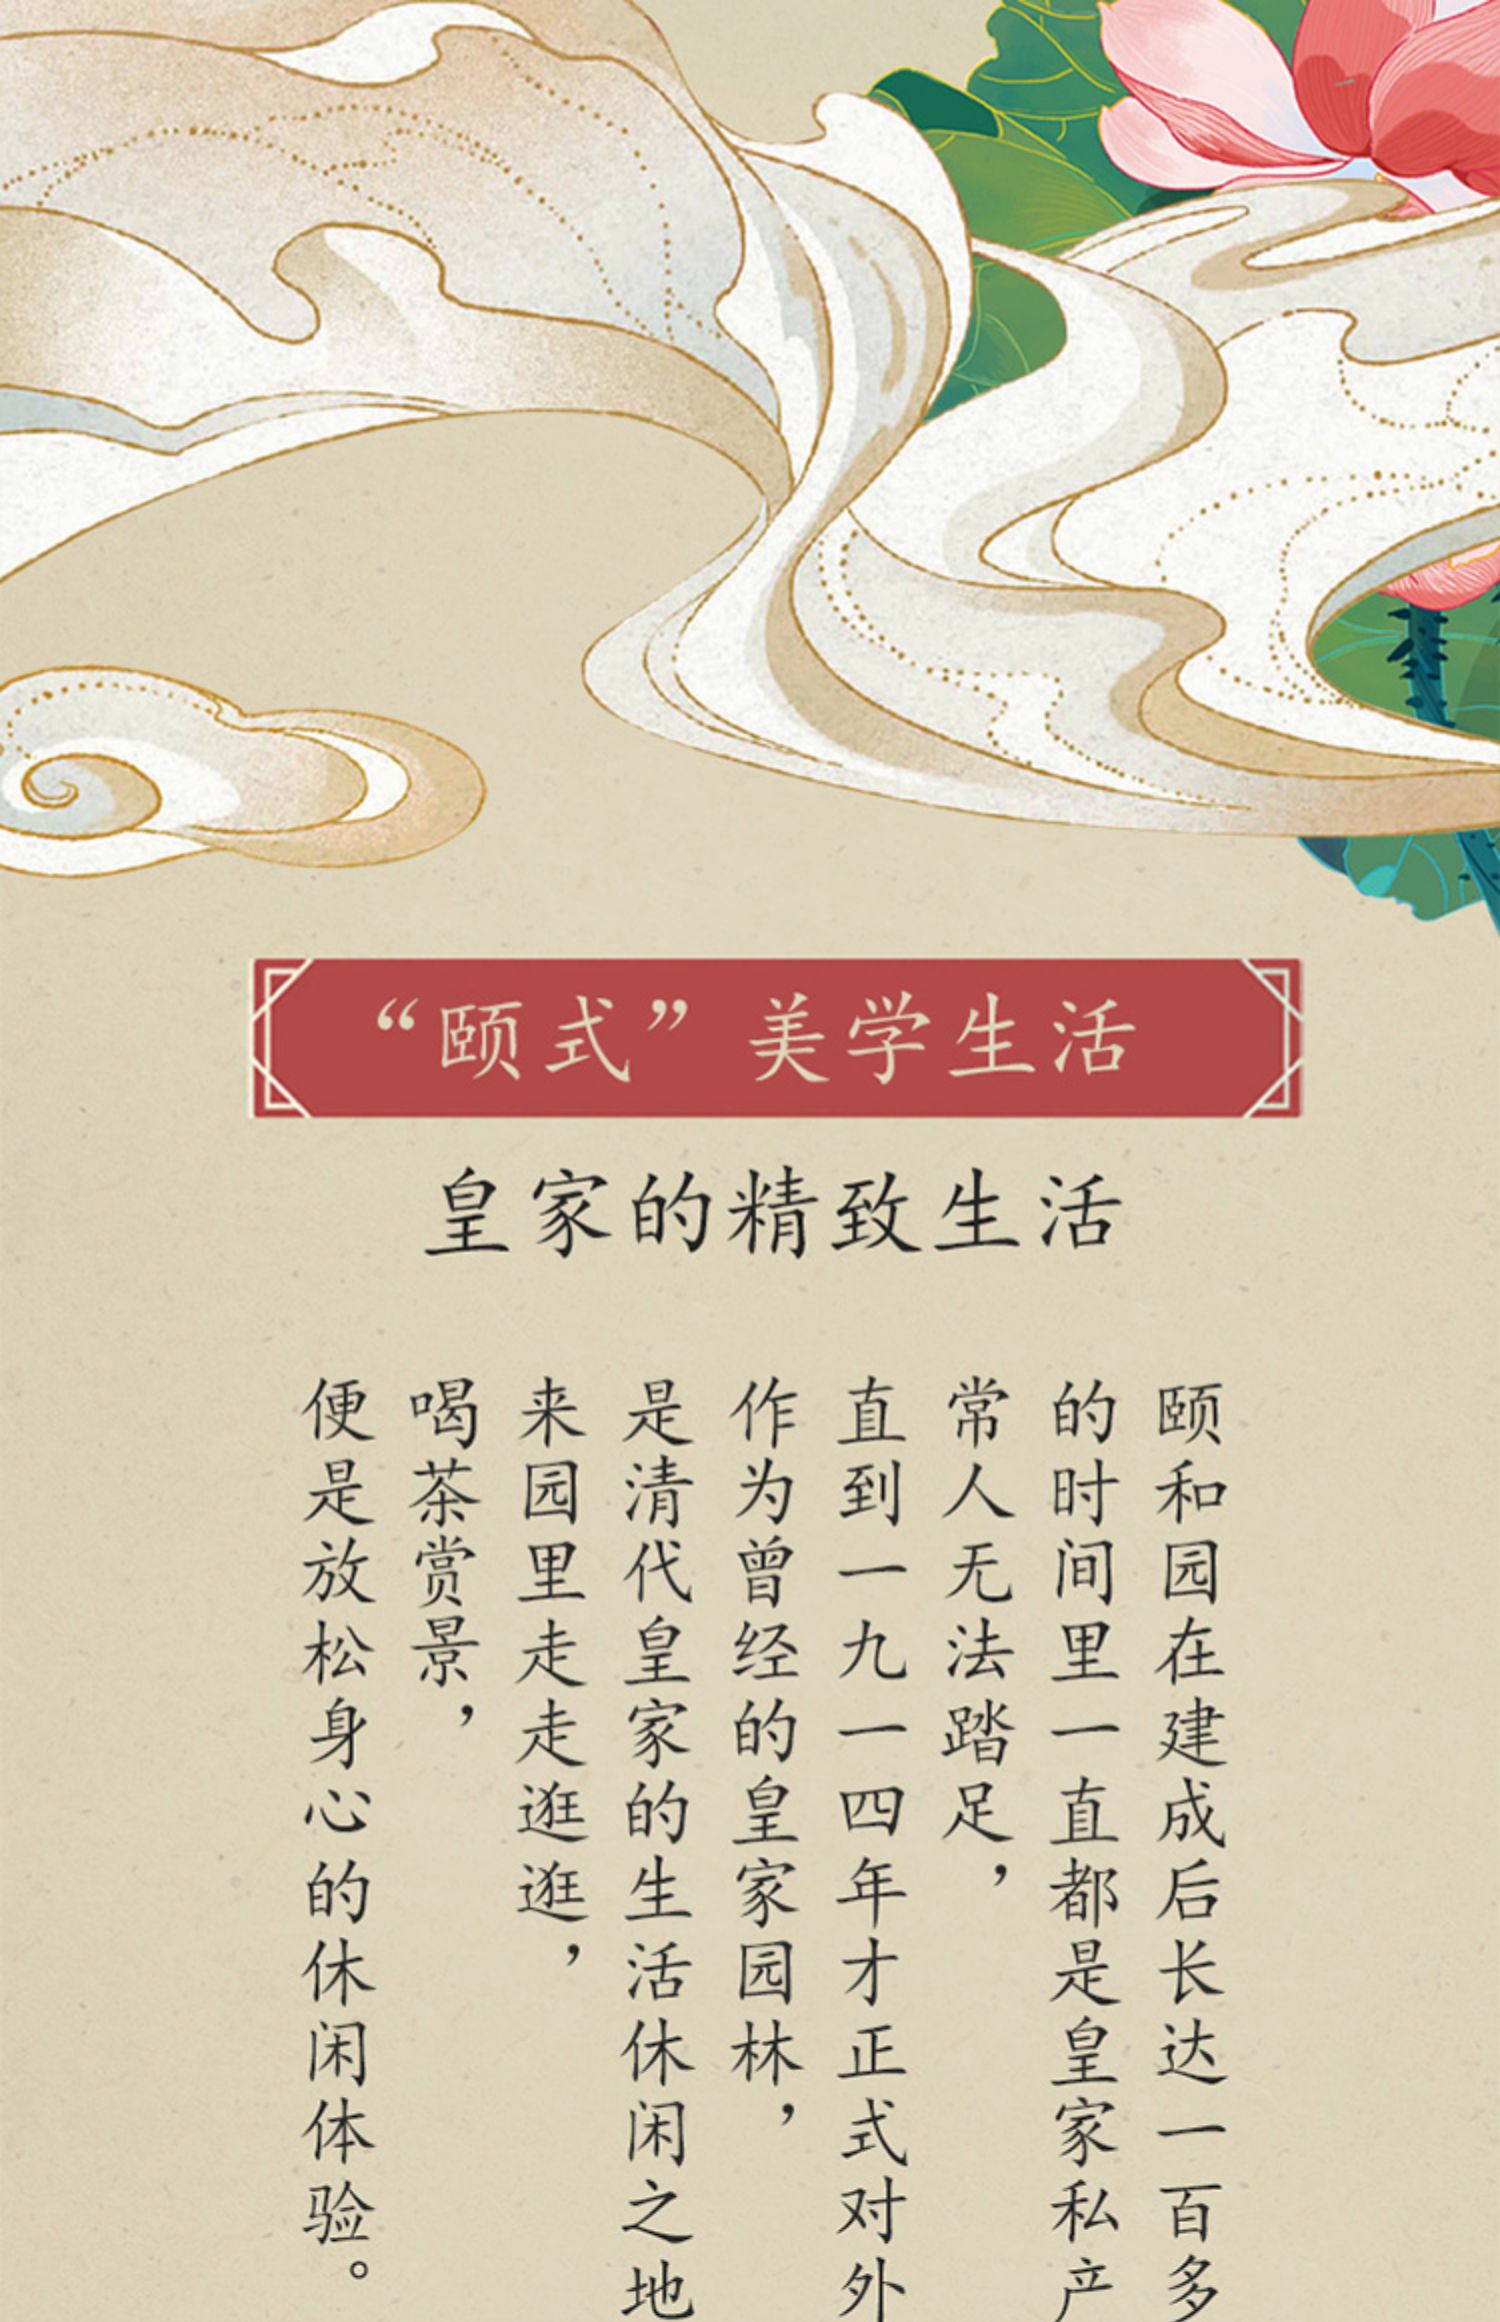 “颐式”美学生活
皇家的精致生活
颐和园在建成后长达一百多
的时间里一直都是皇家私产
常人无法踏足，
直到一九一四年才正式对外
作为曾经的皇家园林，
是清代皇家的生活休闲之地
来园里走走逛逛，
喝茶赏景，
便是放松身心的休闲体验。